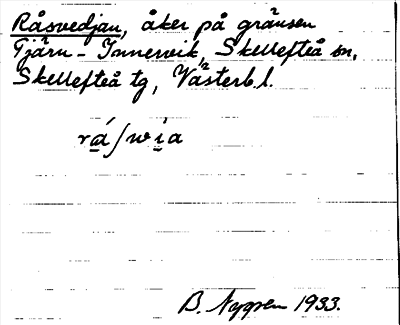 Råsvedjan, åker på gränsen
Gjärn - Innervik, Skellefteå sn,
Skellefteå tg, Västerb. l.
rá̱ʃwi̱a
B. Nygren 1933.